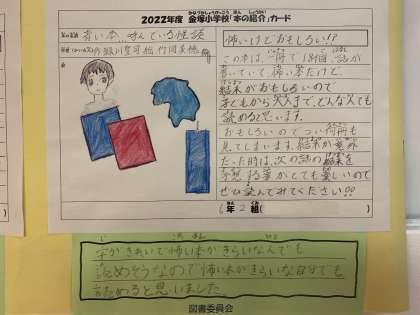 2022年度 金塚小学校「本の紹介」カード
青い本 呼んでいる怪談
怖いけどおもしろい!?
この本は、一冊で18個、話が
書いていて、怖い本だけど、
結果がおもしろいので
子どもから大人まで、どんな人でも
読めると思います。
おもしろいのでつい何回も
見てしまいます。結果が意外
だった時は、次の話の結果を
予想する事がとても楽しいので
ぜひ読んでみてください!!
6年2組(
字がきれいで怖い本がきらいなんでも
読めそうなので怖い本がきらいな自分でも
読めると思いました。
図書委員会